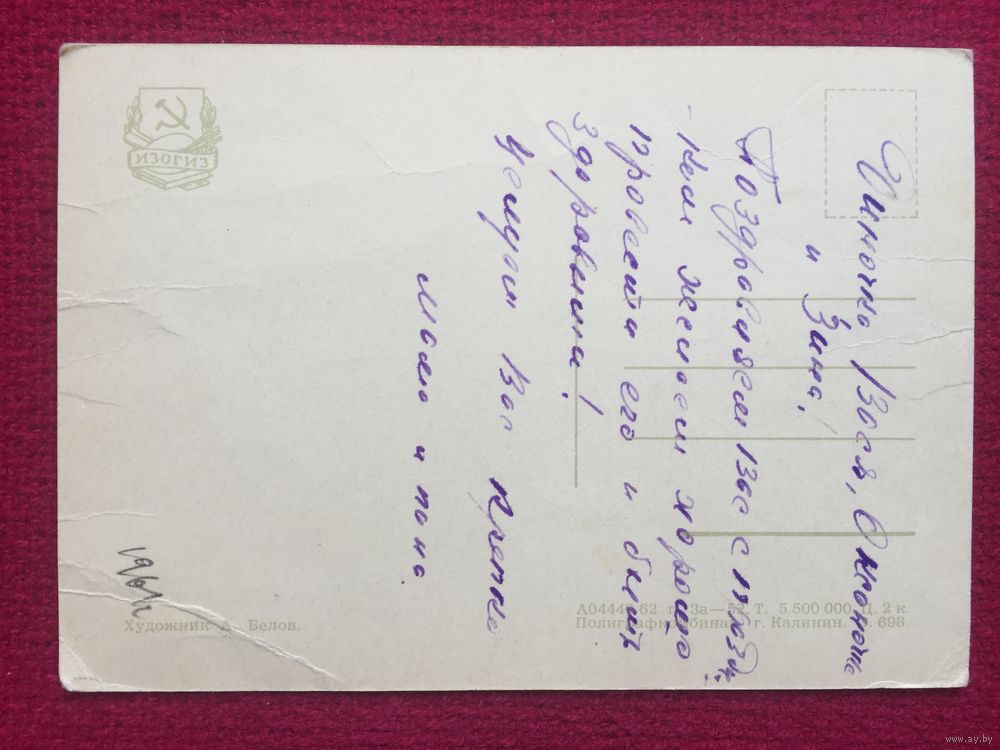 ИЗОГИЗ
Инночка, Вася, Олюночка
и Зина!
Поздравляем Вас с празд.
Как желаем хорошо
провести его и быть
здоровыми!
Целуем Вас крепко
мама и папа
1961 г
Художник А. Белов.
А04446 62 г. За—52. Т. 5 500 000. Ц. 2 к.
Полиграфкомбинат г. Калинин. 698.
www.ay.by